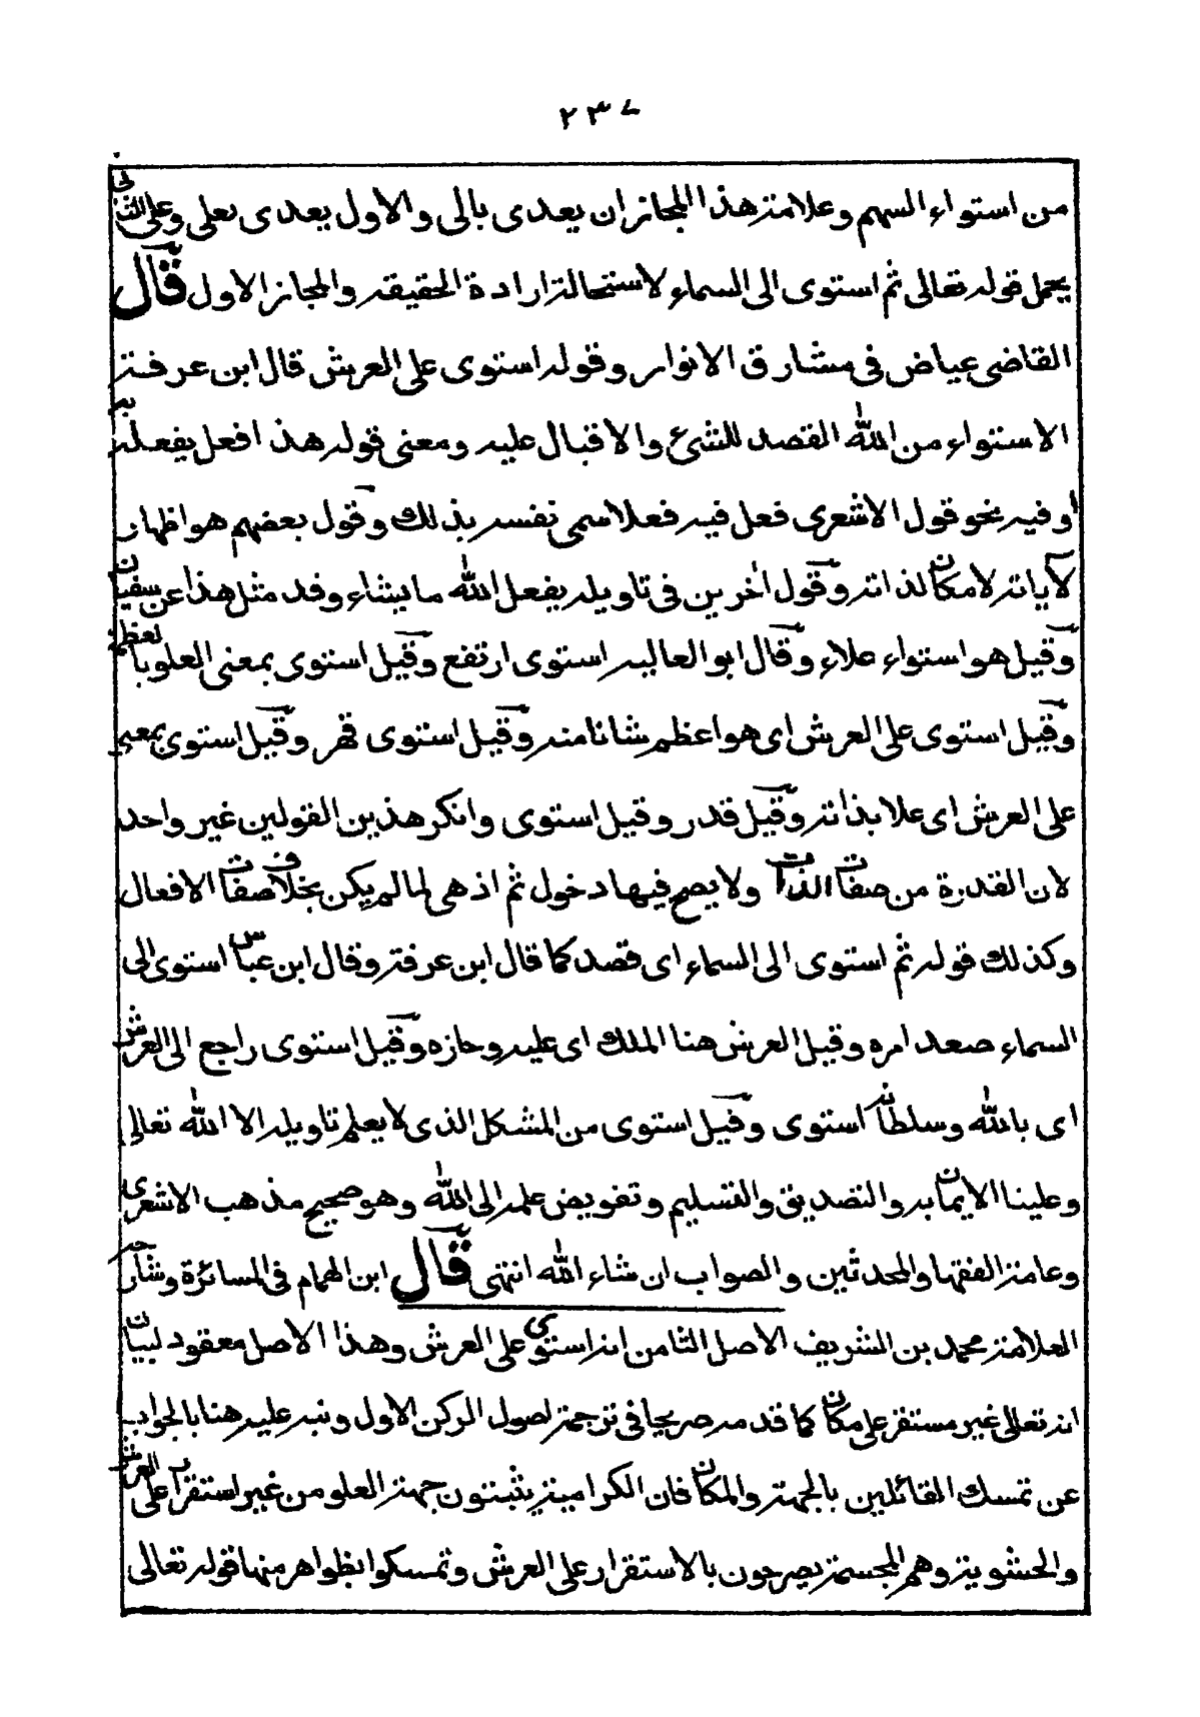 ٢٣٧
من استواء السهم وعلامة هذا المجاز ان يعدى بالى والاول يعدى بعلى وعلى الثانى
يحمل قوله تعالى ثم استوى الى السماء لاستحالة ارادة الحقيقه والمجاز الاول قال
القاضى عياض فى مشارق الانوار وقوله استوى على العرش قال ابن عرفة
الاستواء من الله القصد للشئ والاقبال عليه ومعنى قوله هذا فعل يفعله به
او فيه نحو قول الاشعرى فعل فيه فعلا سمى نفسه بذلك وقول بعضهم هو اظهار
لآياته لا مكان لذاته وقول اخرين فى تاويله يفعل الله ما يشاء وقد مثل هذا عن سفيان
وقيل هو استواء علاء وقال ابو العاليه استوى ارتفع وقيل استوى بمعنى العلو بالعظمه
وقيل استوى على العرش اى هو اعظم شانا منه وقيل استوى قهر وقيل استوى بمعنى
على العرش اى علا بذاته وقيل قدر وقيل استوى وانكر هذين القولين غير واحد
لان القدرة من صفات الذات ولا يصح فيها دخول ثم اذ هى لما لم يكن بخلاف صفات الافعال
وكذلك قوله ثم استوى الى السماء اى قصد كما قال ابن عرفة وقال ابن عباس استوى الى
السماء صعد امره وقيل العرش هنا الملك اى عليه وحازه وقيل استوى راجع الى العرش
اى بالله وسلطانه استوى وقيل استوى من المشكل الذى لا يعلم تاويله الا الله تعالى
وعلينا الايمان به والتصديق والتسليم وتفويض علمه الى الله وهو صحيح مذهب الاشعرى
وعامة الفقها والمحدثين والصواب ان شاء الله انتهى قال ابن الهمام فى المسائرة وشارحه
العلامة محمد بن الشريف الاصل الثامن انه استوى على العرش وهذا الاصل معقود لبيان
انه تعالى غير مستقر على مكان كما قدمه صريحا فى ترجمة اصول الركن الاول ونبه عليه هنا بالجواب
عن تمسك القائلين بالجهة والمكان فان الكرامية يثبتون جهة العلو من غير استقرار على العرش
والحشوية وهم المجسمة يصرحون بالاستقرار على العرش وتمسكوا بظواهر منها قوله تعالى